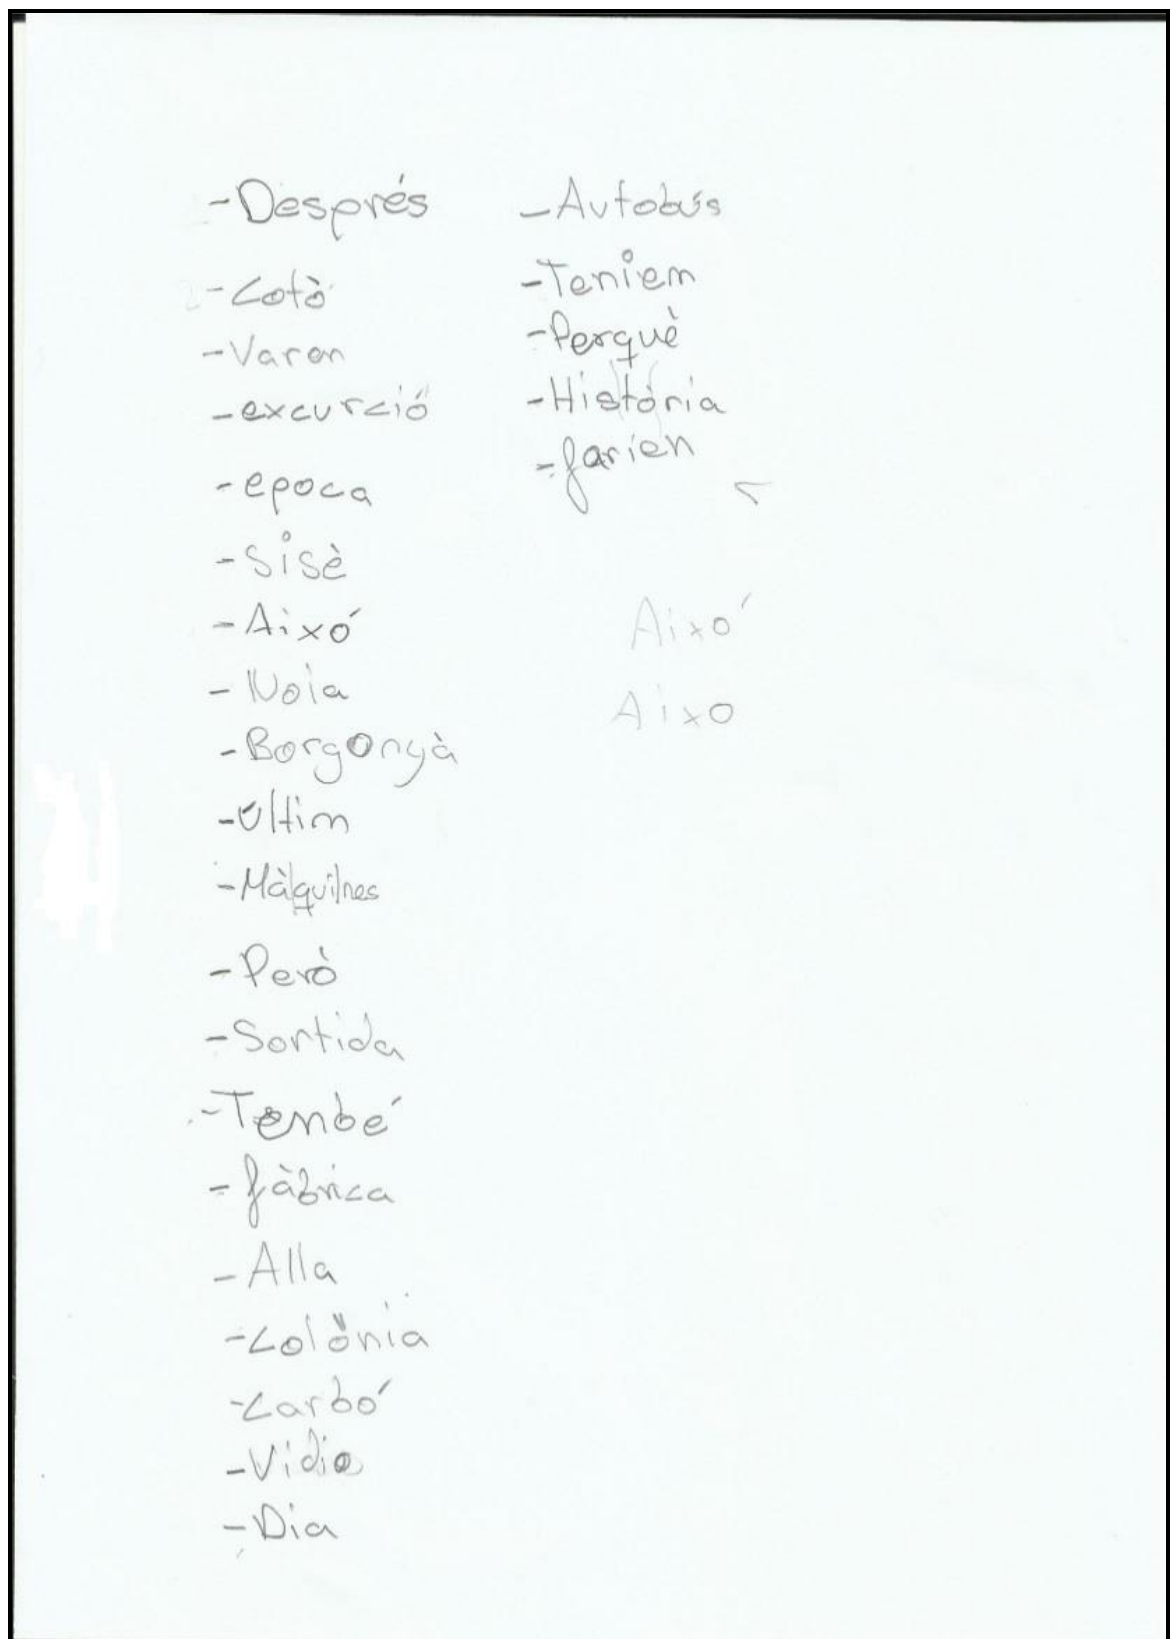 -Després
-Cotò
-Varen
-excurció
-epoca
-Sisè
-Aixó
-Noia
-Borgonyà
-Ultim
-Màquines
-Però
-Sortida
-Tenbé
-fàbrica
-Alla
-Colònia
-Carbó
-Vidio
-Dia
-Autobús
-Teniem
-Perquè
-Història
-farien
Aixó
Aixo